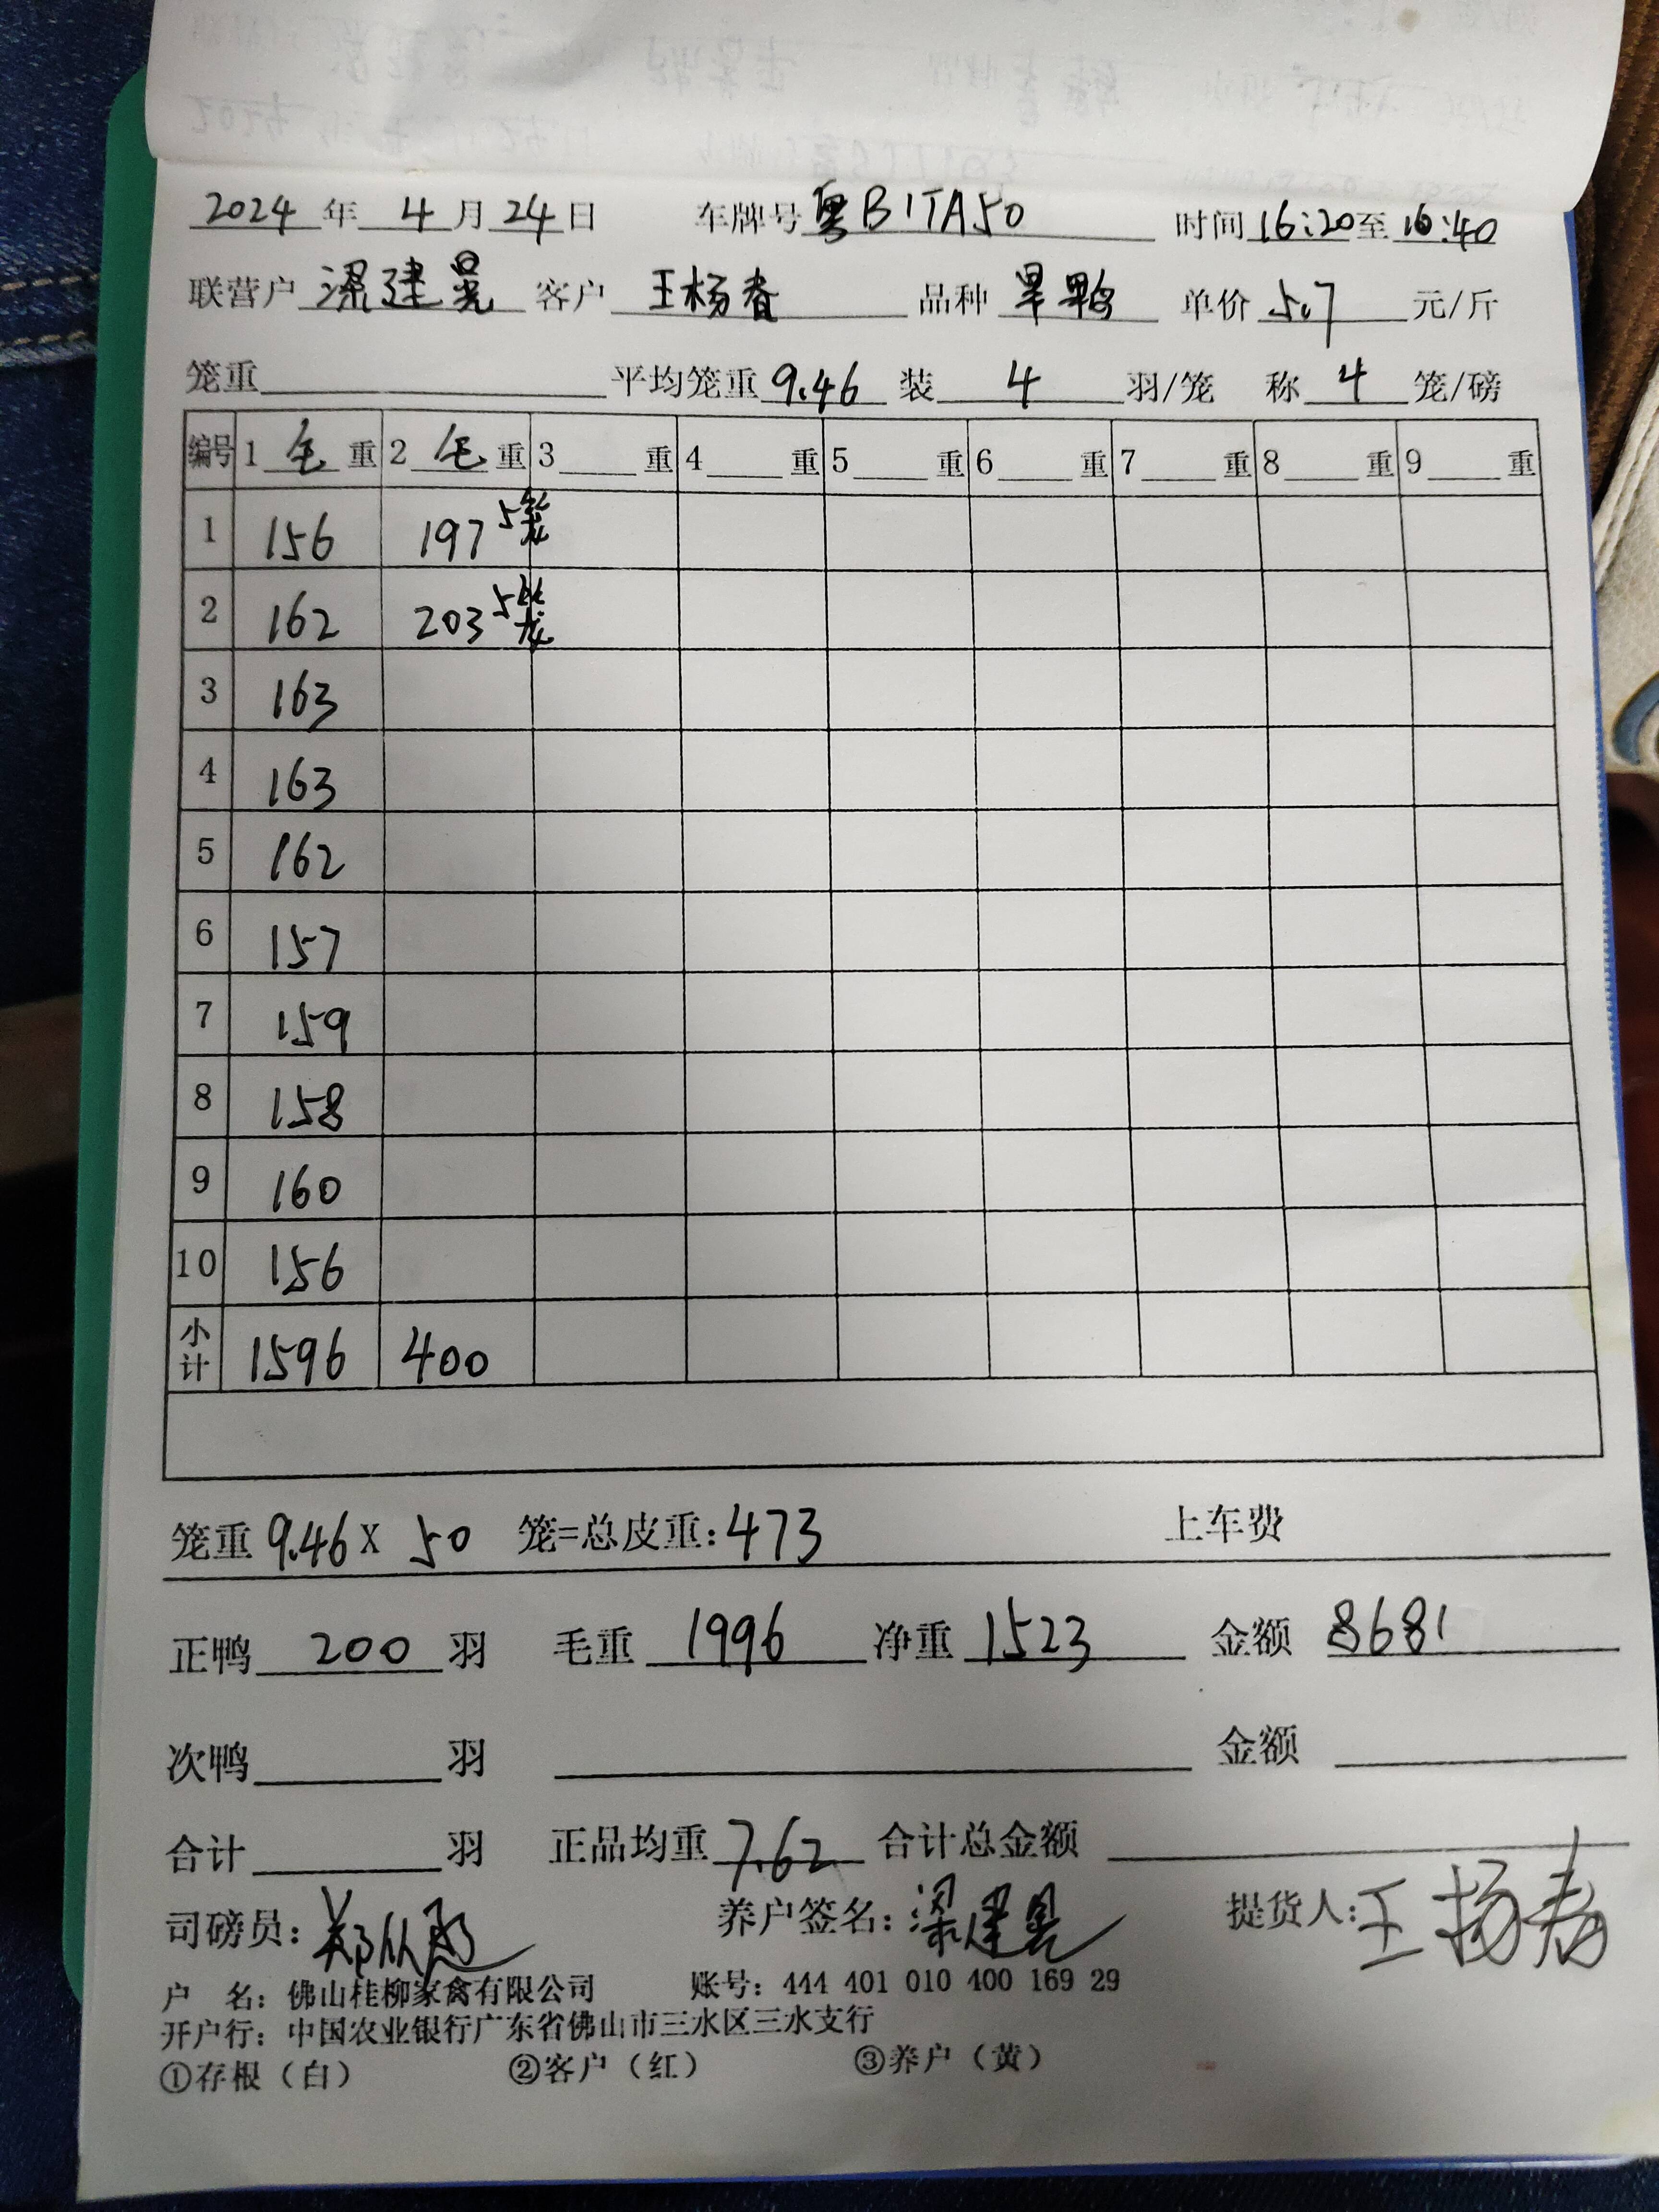 2024 年 4 月 24 日 车牌号 粤B1TA50 时间 16:20 至 16:40
联营户 梁建晃 客户 王杨春 品种 旱鸭 单价 5.7 元/斤
笼重 平均笼重 9.46 装 4 羽/笼 称 4 笼/磅
编号 1 毛 重 2 毛 重 3 重 4 重 5 重 6 重 7 重 8 重 9 重
1 156 197 5笼
2 162 203 5笼
3 163
4 163
5 162
6 157
7 159
8 158
9 160
10 156
小计 1596 400
笼重 9.46 X 50 笼=总皮重: 473 上车费
正鸭 200 羽 毛重 1996 净重 1523 金额 8681
次鸭 羽 金额
合计 羽 正品均重 7.62 合计总金额
司磅员: 养户签名: 梁建晃 提货人: 王扬春
户 名: 佛山桂柳家禽有限公司 账号: 444 401 010 400 169 29
开户行: 中国农业银行广东省佛山市三水区三水支行
①存根（白） ②客户（红） ③养户（黄）